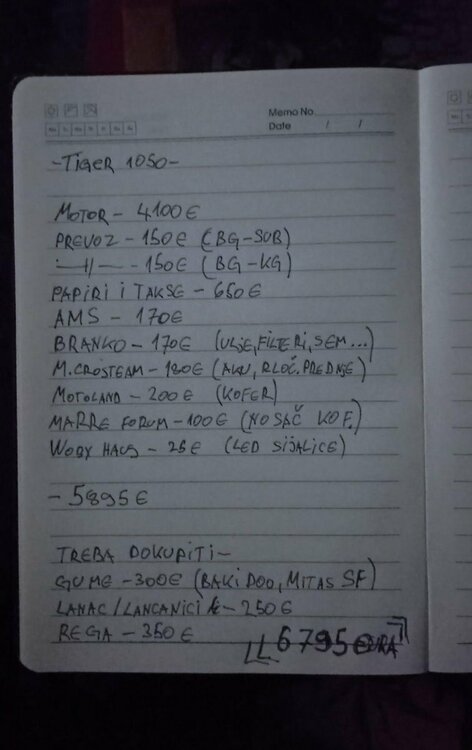 Memo No.
Date / /
-TIGER 1050-
MOTOR - 4100€
PREVOZ - 150€ (BG-SUB)
—||— - 150€ (BG-KG)
PAPIRI I TAKSE - 650€
AMS - 170€
BRANKO - 170€ (ULJE, FILTERI, SEM...)
M.CROSTEAM - 180€ (AKU, PLOČ. PREDNJE)
MOTOLAND - 200€ (KOFER)
MARRE FORUM - 100€ (NOSAČ KOF.)
WOBY HAUS - 25€ (LED SIJALICE)
- 5895€
TREBA DOKUPITI -
GUME - 300€ (BAKI DOO, MITAS SF)
LANAC/LANCANICI - 250€
REGA - 350€
6795